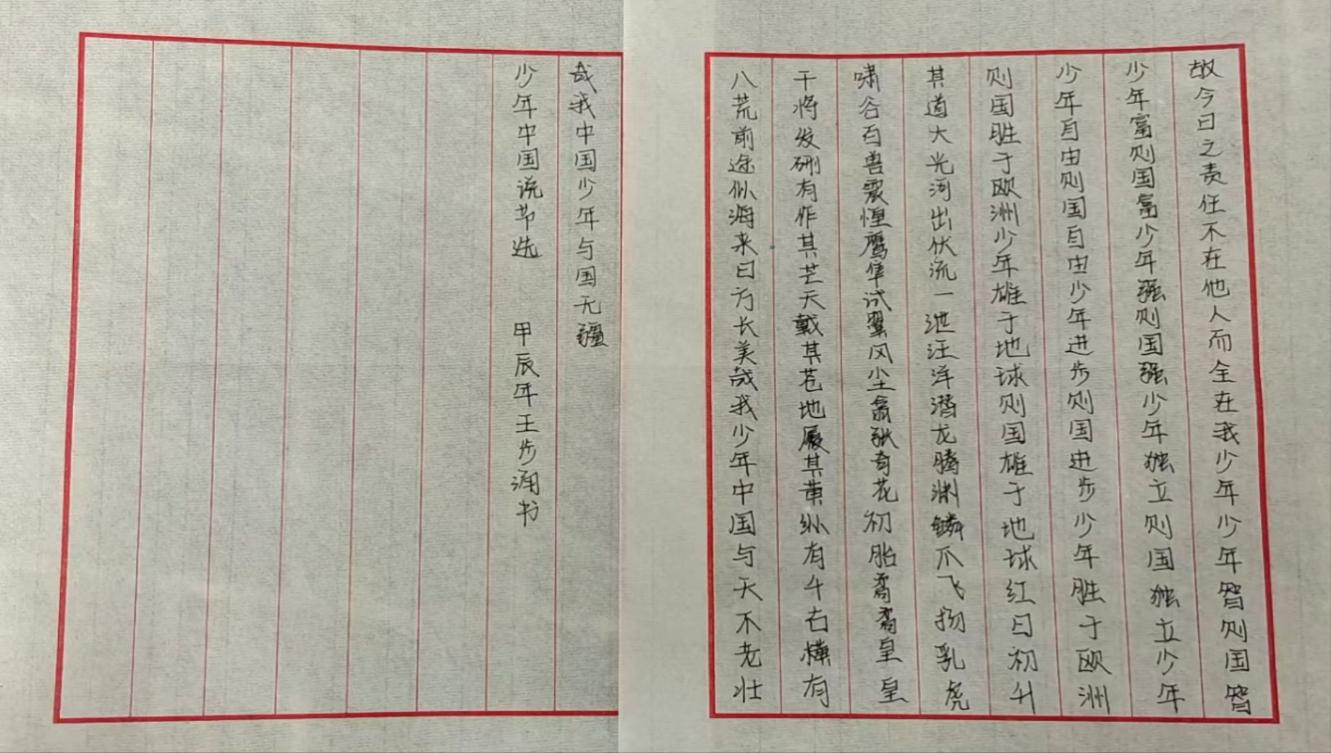 故今日之责任不在他人而全在我少年少年智则国智
少年富则国富少年强则国强少年独立则国独立少年
少年自由则国自由少年进步则国进步少年胜于欧洲
则国胜于欧洲少年雄于地球则国雄于地球红日初升
其道大光河出伏流一泄汪洋潜龙腾渊鳞爪飞扬乳虎
啸谷百兽震惶鹰隼试翼风尘翕张奇花初胎矞矞皇皇
干将发硎有作其芒天戴其苍地履其黄纵有千古横有
八荒前途似海来日方长美哉我少年中国与天不老壮
哉我中国少年与国无疆
少年中国说节选 甲辰年王步海书